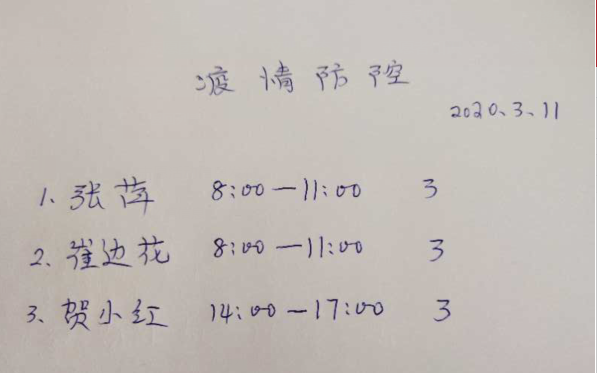 疫情防控
2020.3.11
1. 张萍 8:00—11:00 3
2. 崔边花 8:00—11:00 3
3. 贺小红 14:00—17:00 3